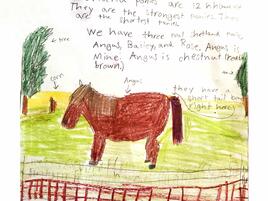 ponies are 12
They are the strongest ponies. They
are the shortest ponies
We have three shetland
Angus, Bailey, and Rose. Angus is
Mine. Angus is chestnut
brown.)
tree
corn
Angus
they have a
short tail
right here